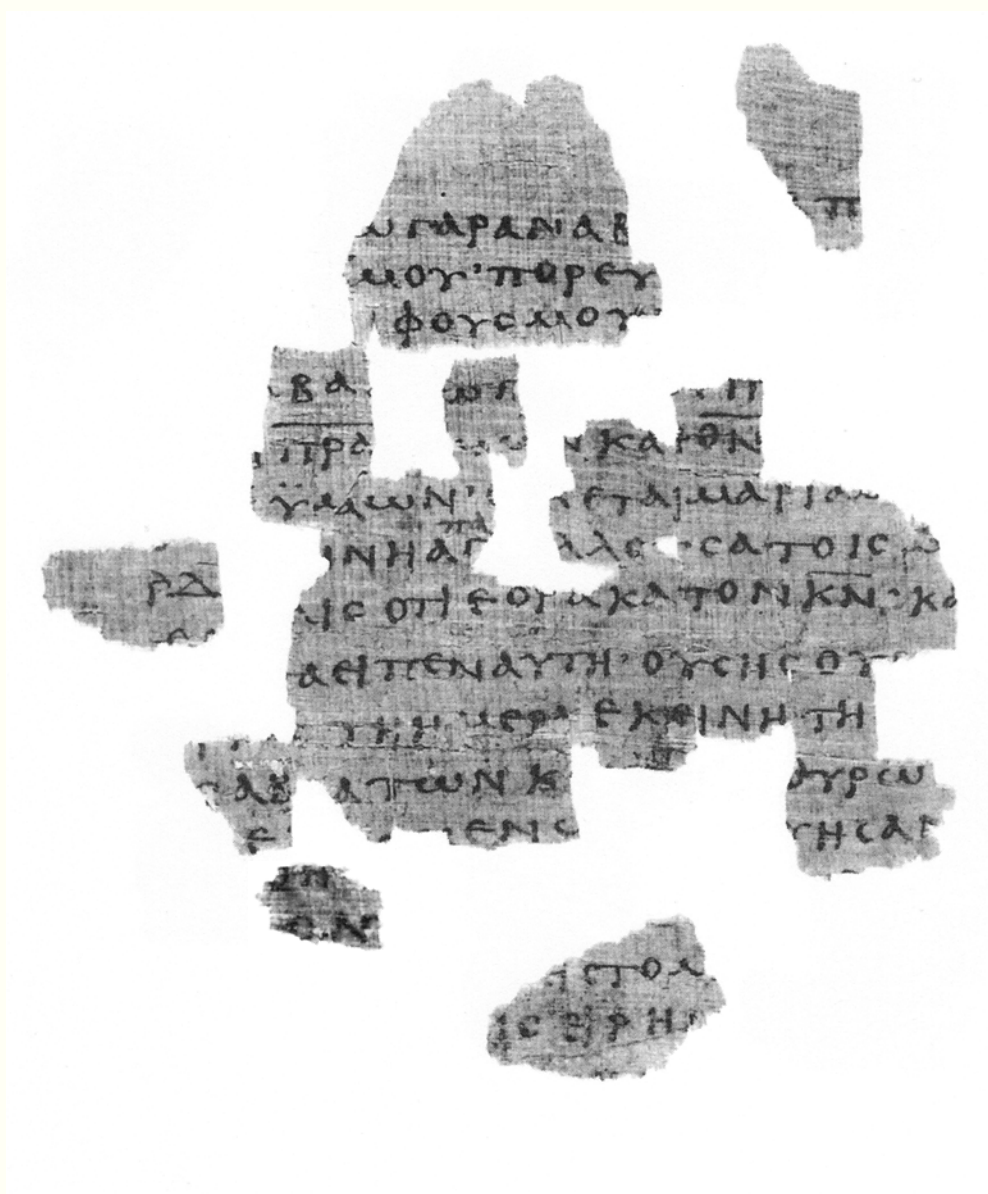 ωγαραναβ π
μου·πορευ
φουςμου
βα ωπ π
πρα μων κα θν
ϋμων· εται μαρια
πα
ινη αγ λλε σατοις
ρδ
ις οτι εορακα τον κν· κα
α ειπεν αυτη· ουσης ου
τη ημερα εκεινη τη
σαβ ατων κ θυρω
ε μενς ηςα
π
ον
στολ
ις ειρη